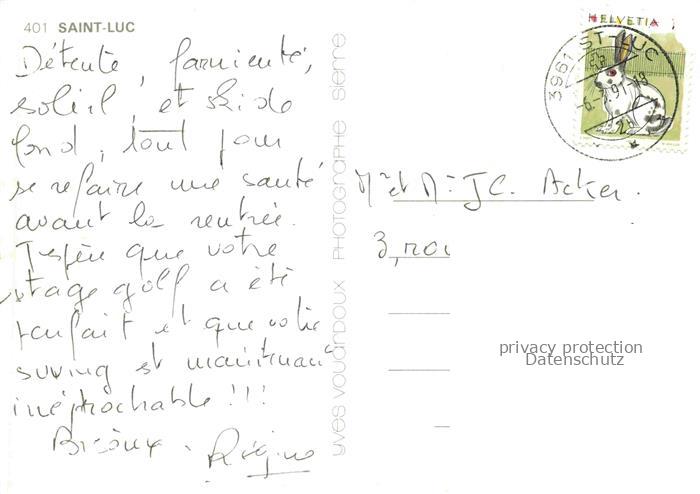 401 SAINT-LUC
Détente, farniente,
soleil, et ski de
fond, tout pour
se refaire une santé
avant la rentrée.
J'espère que votre
stage golf a été
parfait et que votre
swing est maintenant
inéprochable !!!
Bisoux.
Régine
yves vouardoux PHOTOGRAPHE sierre
HELVETIA
3961 ST-LUC
M. et Me JC. Acker.
3, rou
privacy protection
Datenschutz